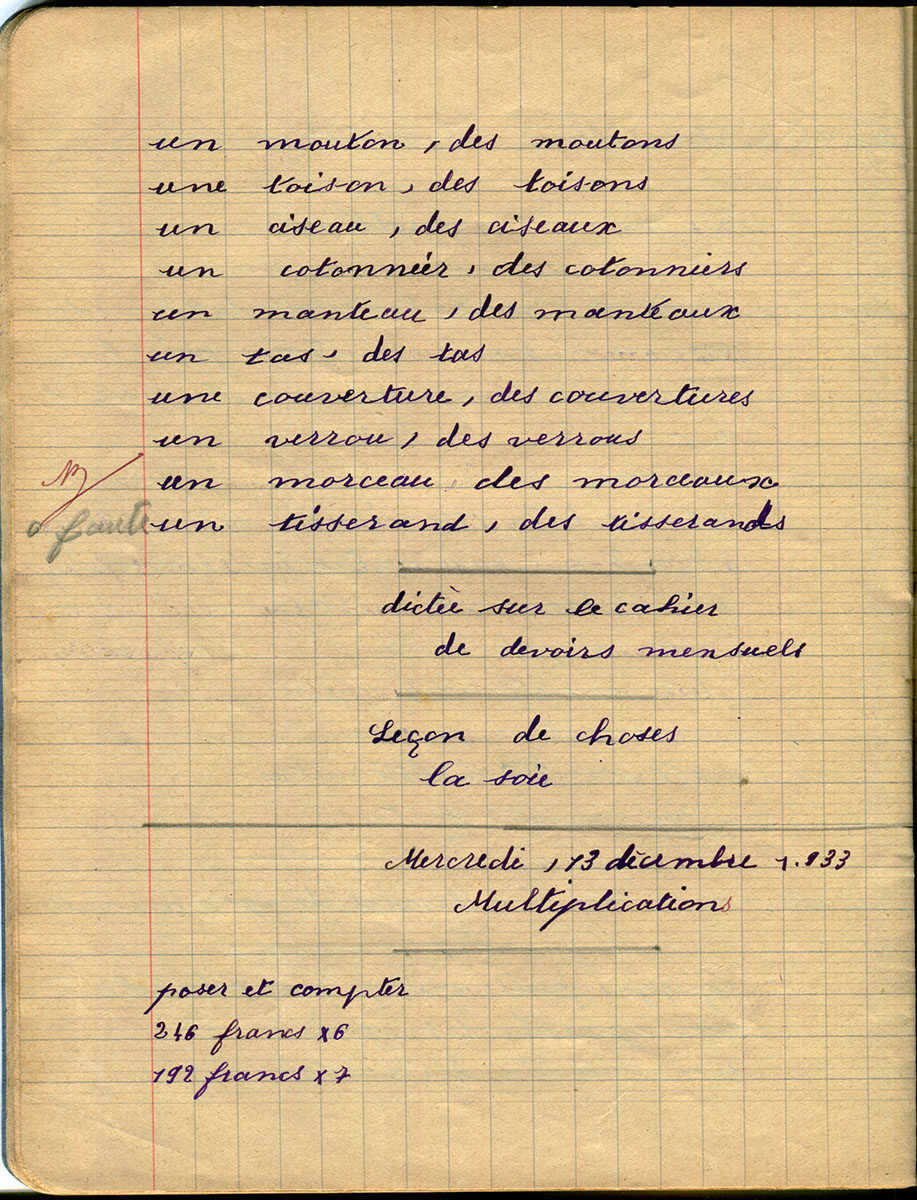 un mouton, des moutons
une toison, des toisons
un ciseau, des ciseaux
un cotonnier, des cotonniers
un manteau, des manteaux
un tas, des tas
une couverture, des couvertures
un verrou, des verrous
un morceau, des morceaux
0 faute
un tisserand, des tisserands
dictée sur le cahier
de devoirs mensuels
Leçon de choses
la soie
Mercredi, 13 décembre 1.933
Multiplications
poser et compter
246 francs x6
192 francs x7